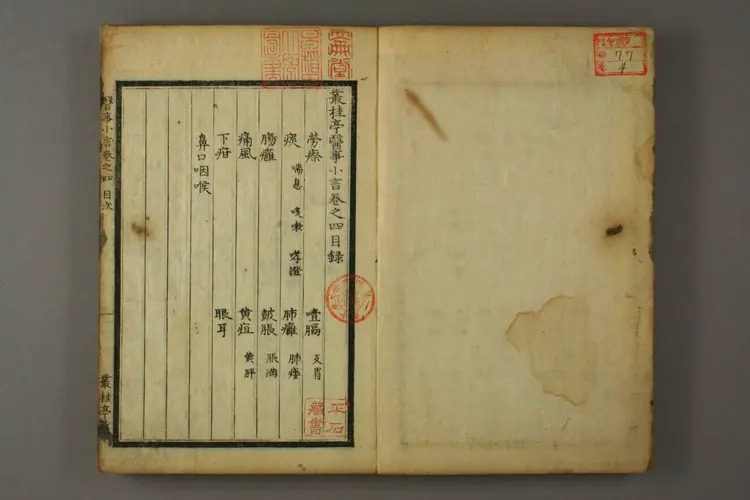 叢桂亭醫事小言卷之四目録
勞瘵 噎膈 反胃
痰 喘息 咳嗽 哮證 肺癰 肺痿
腸癰 皷脹 脹満
痛風 黄疸 黄胖
下疳 眼耳
鼻口咽喉
醫事小言卷之四 目次
叢桂亭藏
平石
藏書
77
4